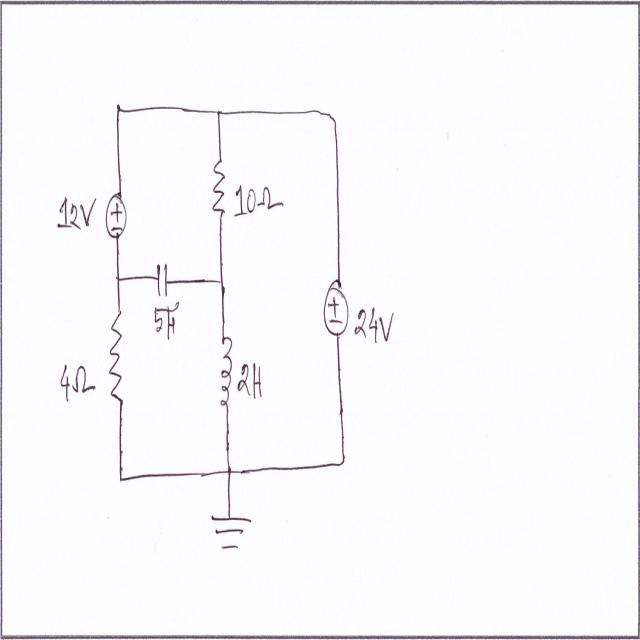 12V
10Ω
5F
24V
4Ω
2H